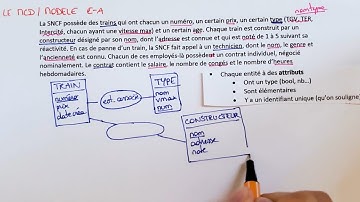 LE MCD / MODELE E-A
nomtype
La SNCF possède des trains qui ont chacun un numéro, un certain prix, un certain type (TGV, TER,
Intercité, chacun ayant une vitesse max) et un certain age. Chaque train est construit par un
constructeur désigné par son nom, dont l'adresse est connue et est noté de 1 à 5 suivant sa
réactivité. En cas de panne d'un train, la SNCF fait appel à un technicien, dont le nom, le genre et
l'ancienneté est connu. Chacun de ces employés-là possèdent un contrat individuel, négocié
nominativement. Le contrat contient le salaire, le nombre de congés et le nombre d'heures
hebdomadaires.
• Chaque entité à des attributs
• Ont un type (bool, nb...)
• Sont élémentaires
• Y a un identifiant unique (qu'on souligne)
TRAIN
numéro
prix
date créa
est associé
TYPE
nom
vmax
num
CONSTRUCTEUR
nom
adresse
note